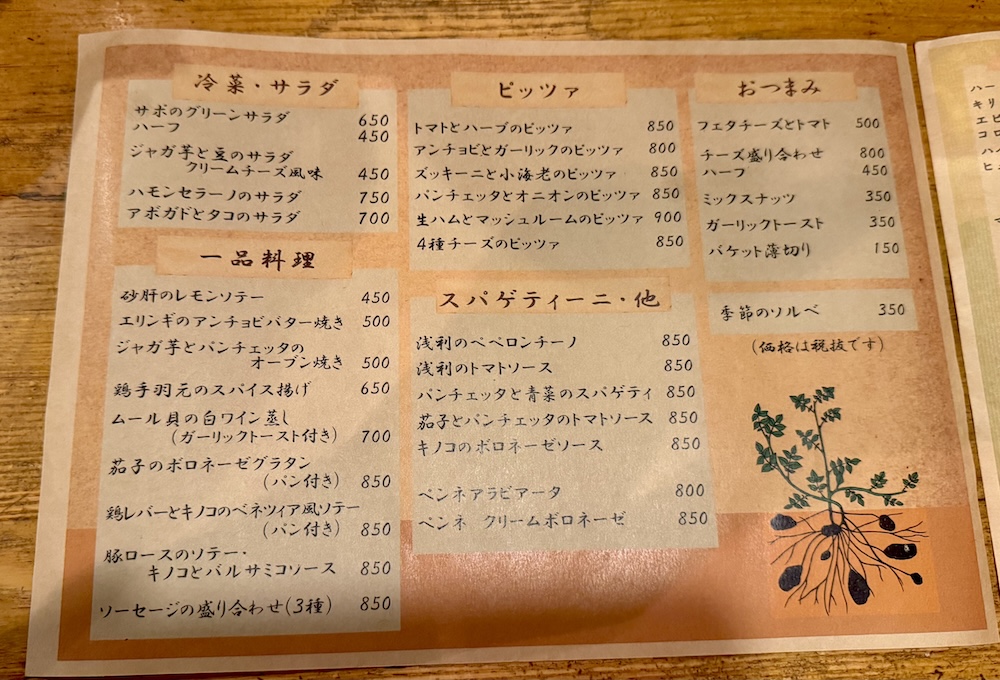 冷菜・サラダ
サボのグリーンサラダ 650
ハーフ 450
ジャガ芋と豆のサラダ
クリームチーズ風味 450
ハモンセラーノのサラダ 750
アボガドとタコのサラダ 700
一品料理
砂肝のレモンソテー 450
エリンギのアンチョビバター焼き 500
ジャガ芋とパンチェッタの
オーブン焼き 500
鶏手羽元のスパイス揚げ 650
ムール貝の白ワイン蒸し
(ガーリックトースト付き) 700
茄子のボロネーゼグラタン
(パン付き) 850
鶏レバーとキノコのベネツィア風ソテー
(パン付き) 850
豚ロースのソテー・
キノコとバルサミコソース 850
ソーセージの盛り合わせ(3種) 850
ピッツァ
トマトとハーブのピッツァ 850
アンチョビとガーリックのピッツァ 800
ズッキーニと小海老のピッツァ 850
パンチェッタとオニオンのピッツァ 850
生ハムとマッシュルームのピッツァ 900
4種チーズのピッツァ 850
スパゲティーニ・他
浅利のペペロンチーノ 850
浅利のトマトソース 850
パンチェッタと青菜のスパゲティ 850
茄子とパンチェッタのトマトソース 850
キノコのボロネーゼソース 850
ペンネアラビアータ 800
ペンネ クリームボロネーゼ 850
おつまみ
フェタチーズとトマト 500
チーズ盛り合わせ 800
ハーフ 450
ミックスナッツ 350
ガーリックトースト 350
バケット薄切り 150
季節のソルベ 350
(価格は税抜です)
ハー
キリ
エビ
コロ
ハイ
ヒ